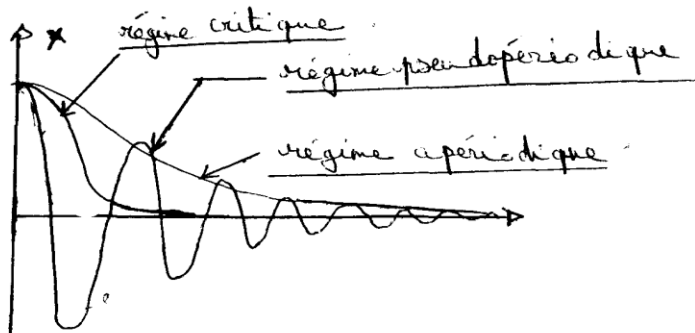 régime critique
x
régime pseudopériodique
régime apériodique